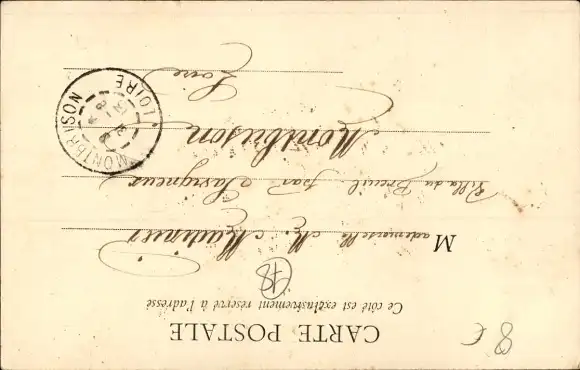 CARTE POSTALE
Ce côté est exclusivement réservé à l'adresse
78
Mademoiselle M.
Villa du Breuil par
Montbrison
Loire
MONTBRISON
LOIRE
8 €